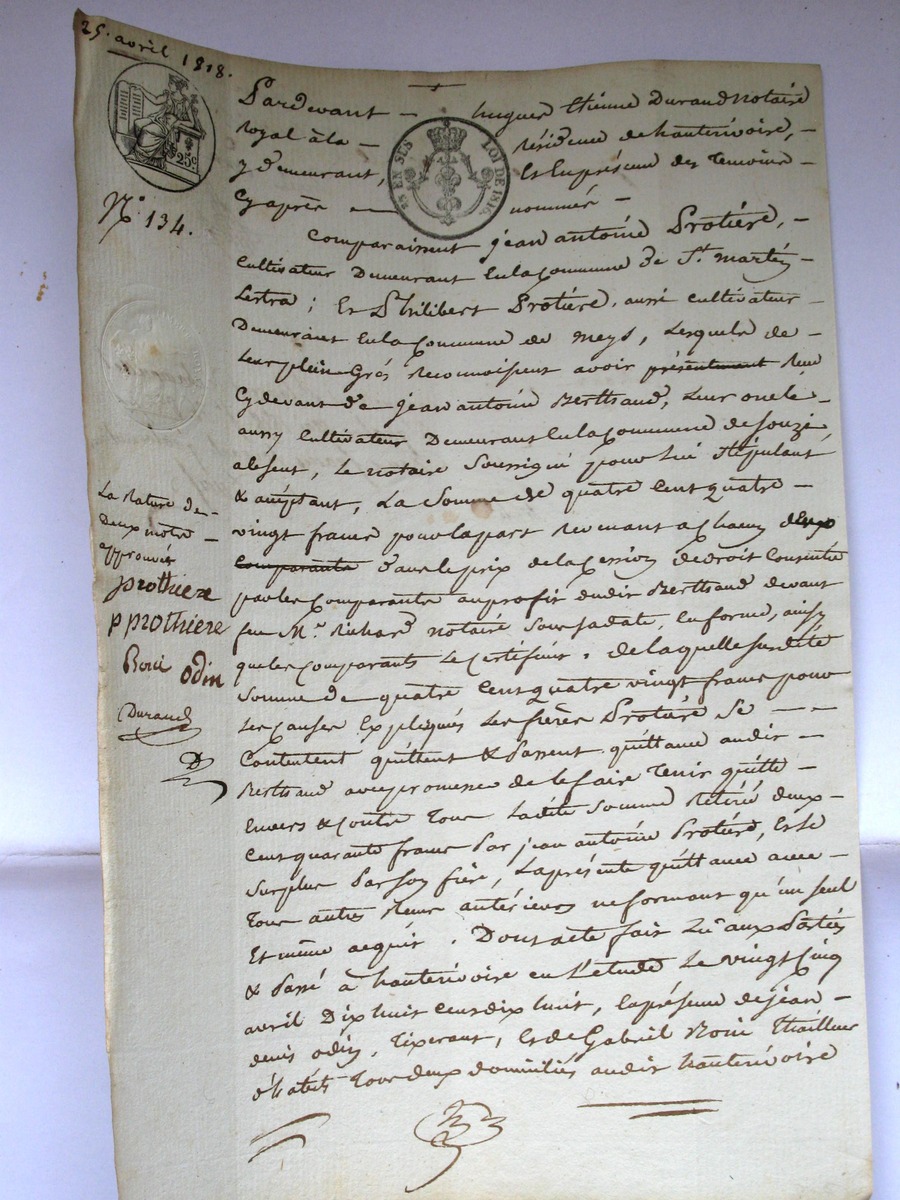 25. avril 1818.
25c
EN SUS LOI DE 1816.
N.° 134.
Pardevant — hugues Etienne Durand notaire
royal à la — résidence de hauterivoire, —
y demeurant, Et En présence des Temoins —
Cy après — nommés —
Comparaissent jean antoine Protière, —
Cultivateur Demeurant En la Commune de St. martin —
Lestra ; Et Philibert Protière, aussi cultivateur —
Demeurant En la Commune de meys, Lesquels de —
Leur plein Grés reconnoissent avoir présentement Reçu
Cydevant de jean antoine Berthaud, Leur oncle
aussy Cultivateur Demeurant En la Commune de souzi
absent, Le notaire soussigné pour lui stipulant
& acceptant, La somme de quatre cent quatre —
vingt francs pour la part Revenant a Chacun deux
Comparants dans le prix de la Cession de droit Consentie
par les Comparants au profit dudit Berthaud devant
feu Mr. Richard notaire sous sa date, En forme, ainsy
que les Comparants Le Certifient. de laquelle susdite
somme de quatre Cent quatre vingt francs pour
Les Causes Expliqués Les frères Protière se — —
Contentent quittent & Passent quittance audit —
Berthaud avec promesse de le faire Tenir quitte —
Envers & Contre Tous Ladite somme Retiré deux —
Cent quarante francs Par jean antoine Protière, Et le
surplus Par son frère, La présente quittance avec —
Tous autres Reçus antérieurs ne formant qu'un seul
Et même acquit. Dont acte fait Lu aux Parties
& Passé à hauterivoire en L'étude Le vingt Cinq
avril Dix huit Cent dix huit, En présence de jean —
denis odin, Tixerant, Et de Gabriel Roni Thailleur
d'habits Tous deux domiciliés audit hauterivoire
La Rature de —
Deux mots —
approuvés
prothiere
p prothiere
Roni odin
Durand
D